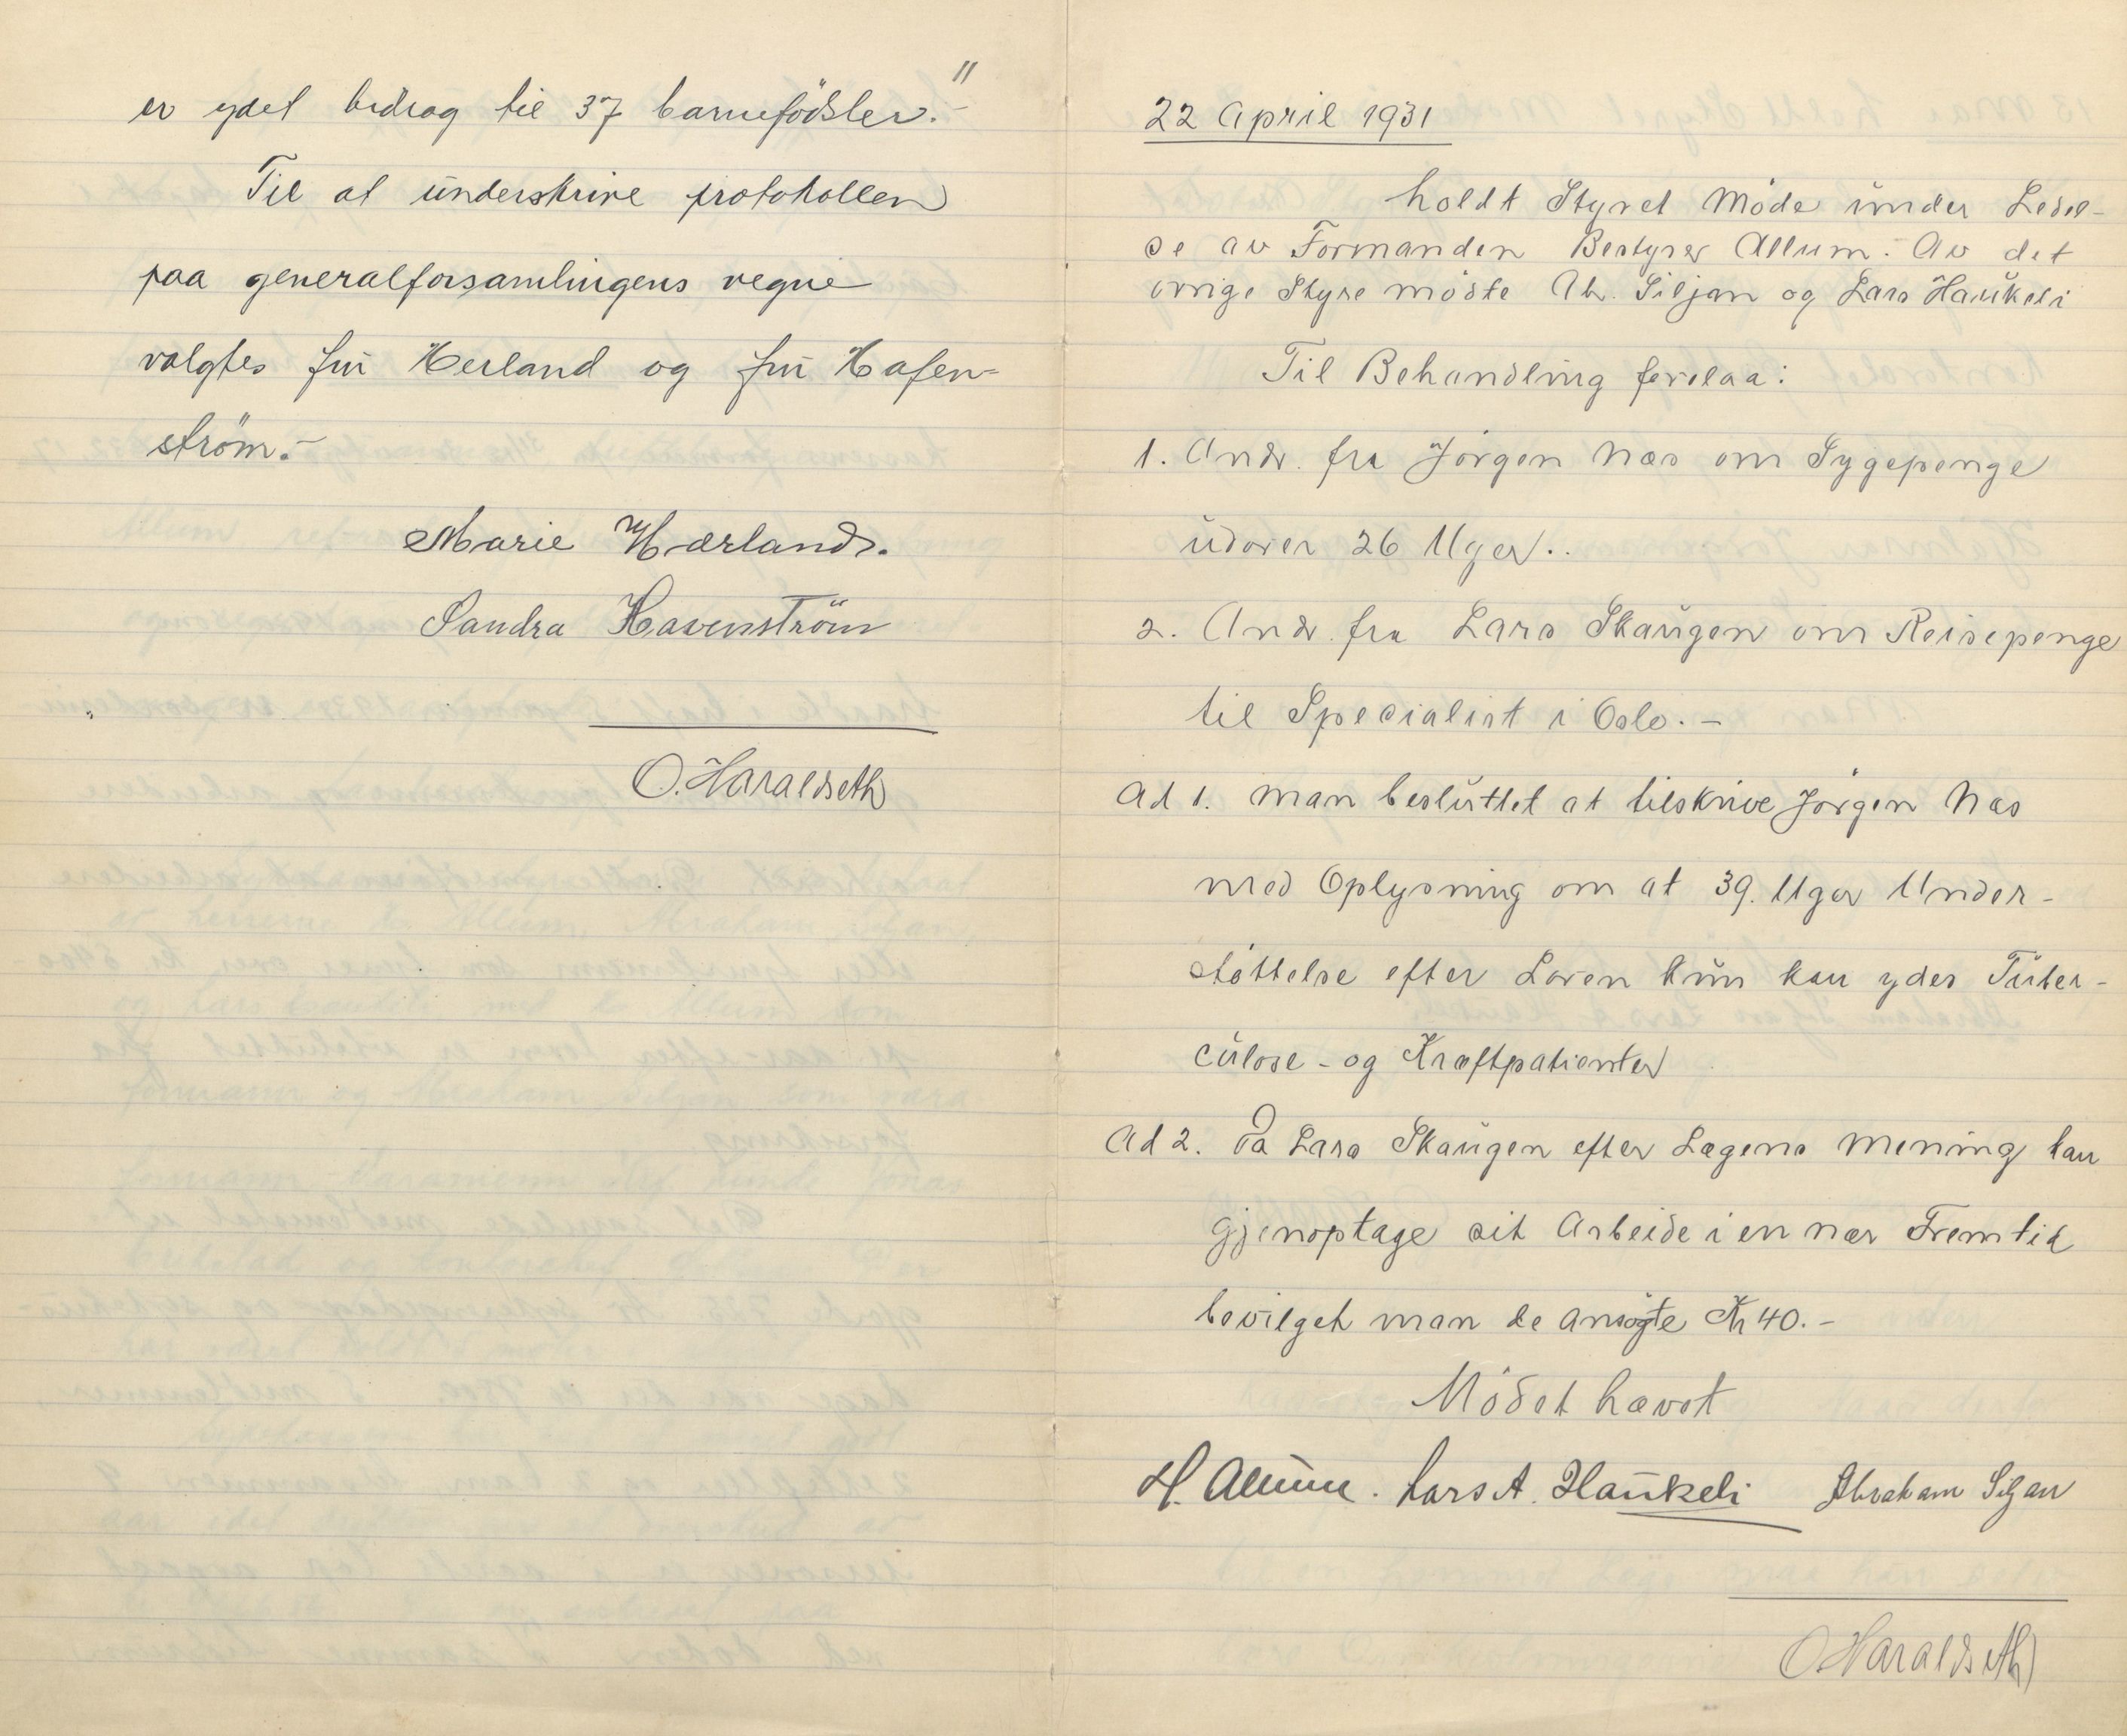 er ydet bidrag til 37 barnefödsler."-
Til at underskrive protokollen
paa generalforsamlingens vegne
valgtes fru Herland og fru Hafen-
ström.-
Marie Hærland.
Sandra Havenström
O. Haraldseth
22 April 1931
holdt Styret Möde under Ledel-
se av Formanden Bestyrer Allum. Av det
övrige Styre mödte Ab. Siljan og Lars Haukeli
Til Behandling forelaa:
1. Andr. fra Jörgen Næs om Sygepenge
udover 26 Uger..
2. Andr. fra Lars Skaugen om Reisepenge
til Specialist i Oslo.-
Ad 1. Man besluttet at tilskrive Jörgen Næs
med Oplysning om at 39. Uger Under-
stöttelse efter Loven kun kan ydes Tuber-
culose- og Kræftpatienter
Ad 2. Da Lars Skaugen efter Lægens Mening kan
gjenoptage sit Arbeide i en nær Fremtid
bevilget man de ansögte Kr 40.-
Mödet hævet
H. Allum. Lars A. Haukeli Abraham Siljan
O Haraldseth